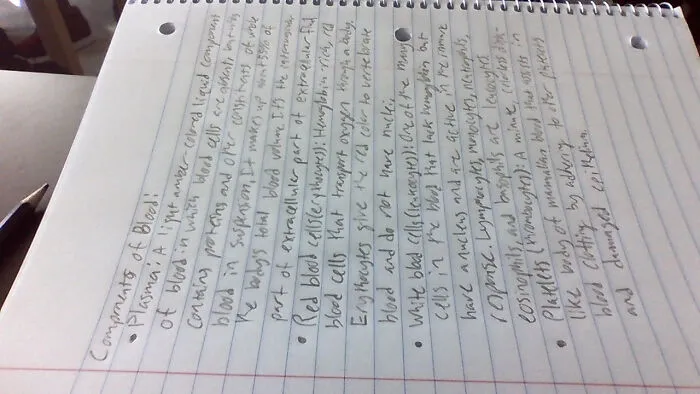 Components of Blood:
• Plasma: A light amber colored liquid component
of blood in which blood cells are absent but
Containing proteins and other constituents of whole
blood in suspension. It makes up about 55% of
the body's total blood volume. It's the intravascular
part of extracellular part of extracellular fluid
• Red blood cells (erythrocytes): Hemoglobin rich, red
blood cells that transport oxygen through a body.
Erythrocytes give the red color to vertebrate
blood and do not have nuclei.
• White blood cells (leukocytes): One of the many
cells in the blood that lack hemoglobin but
have a nucleus and are active in the immune
response. Lymphocytes, monocytes, neutrophils,
eosinophils and basophils are leucocytes
• Platelets (thrombocytes): A minute, colorless disk-
like body of mammalian blood that assists in
blood clotting by adhering to other platelets
and damaged epithelium.